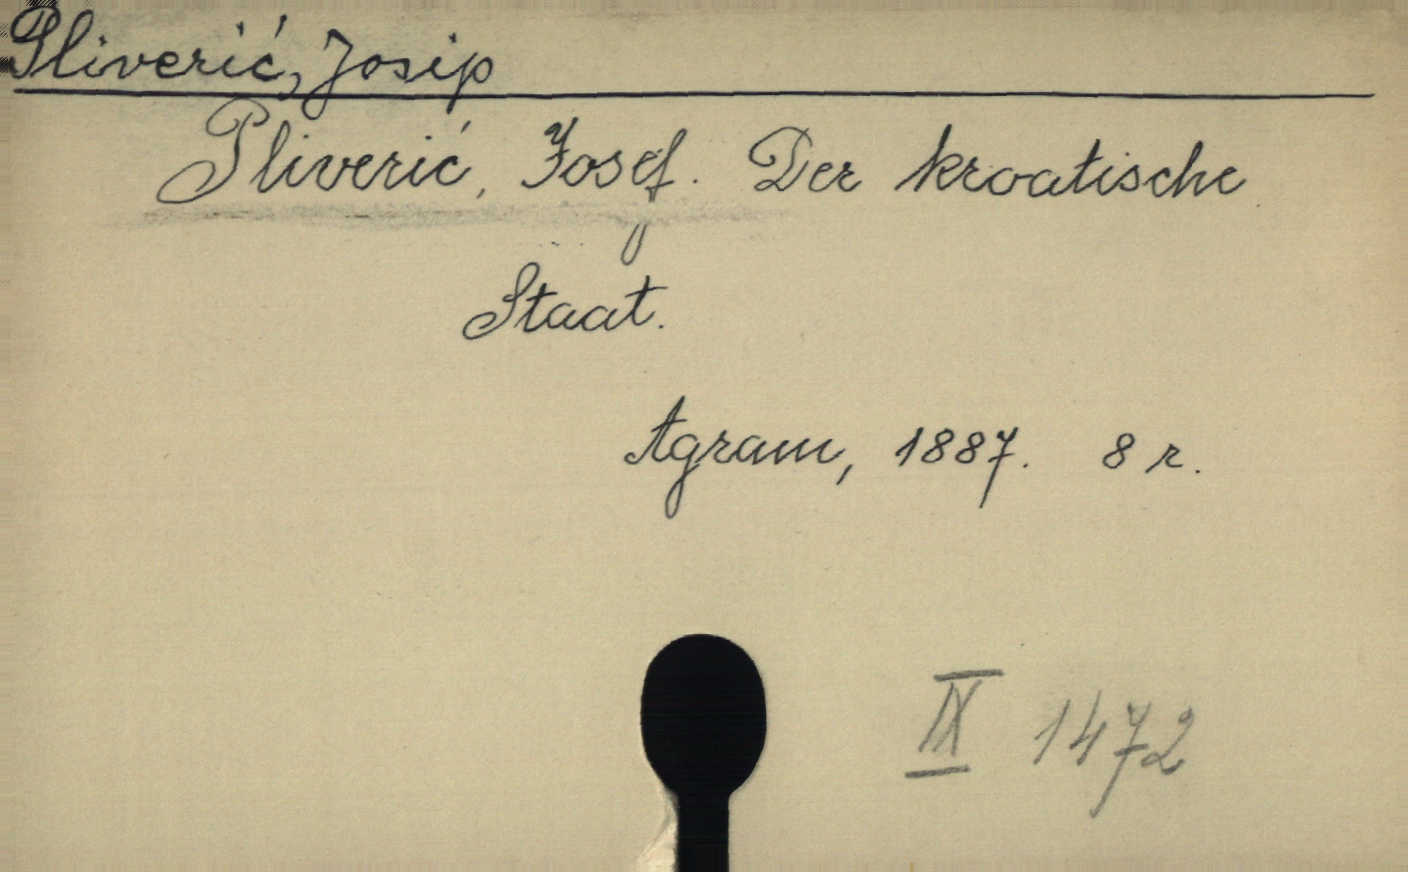 Pliverić, Josip
Pliverić, Josef. Der kroatische
Staat.
Agram, 1887. 8 r.
IX 1472